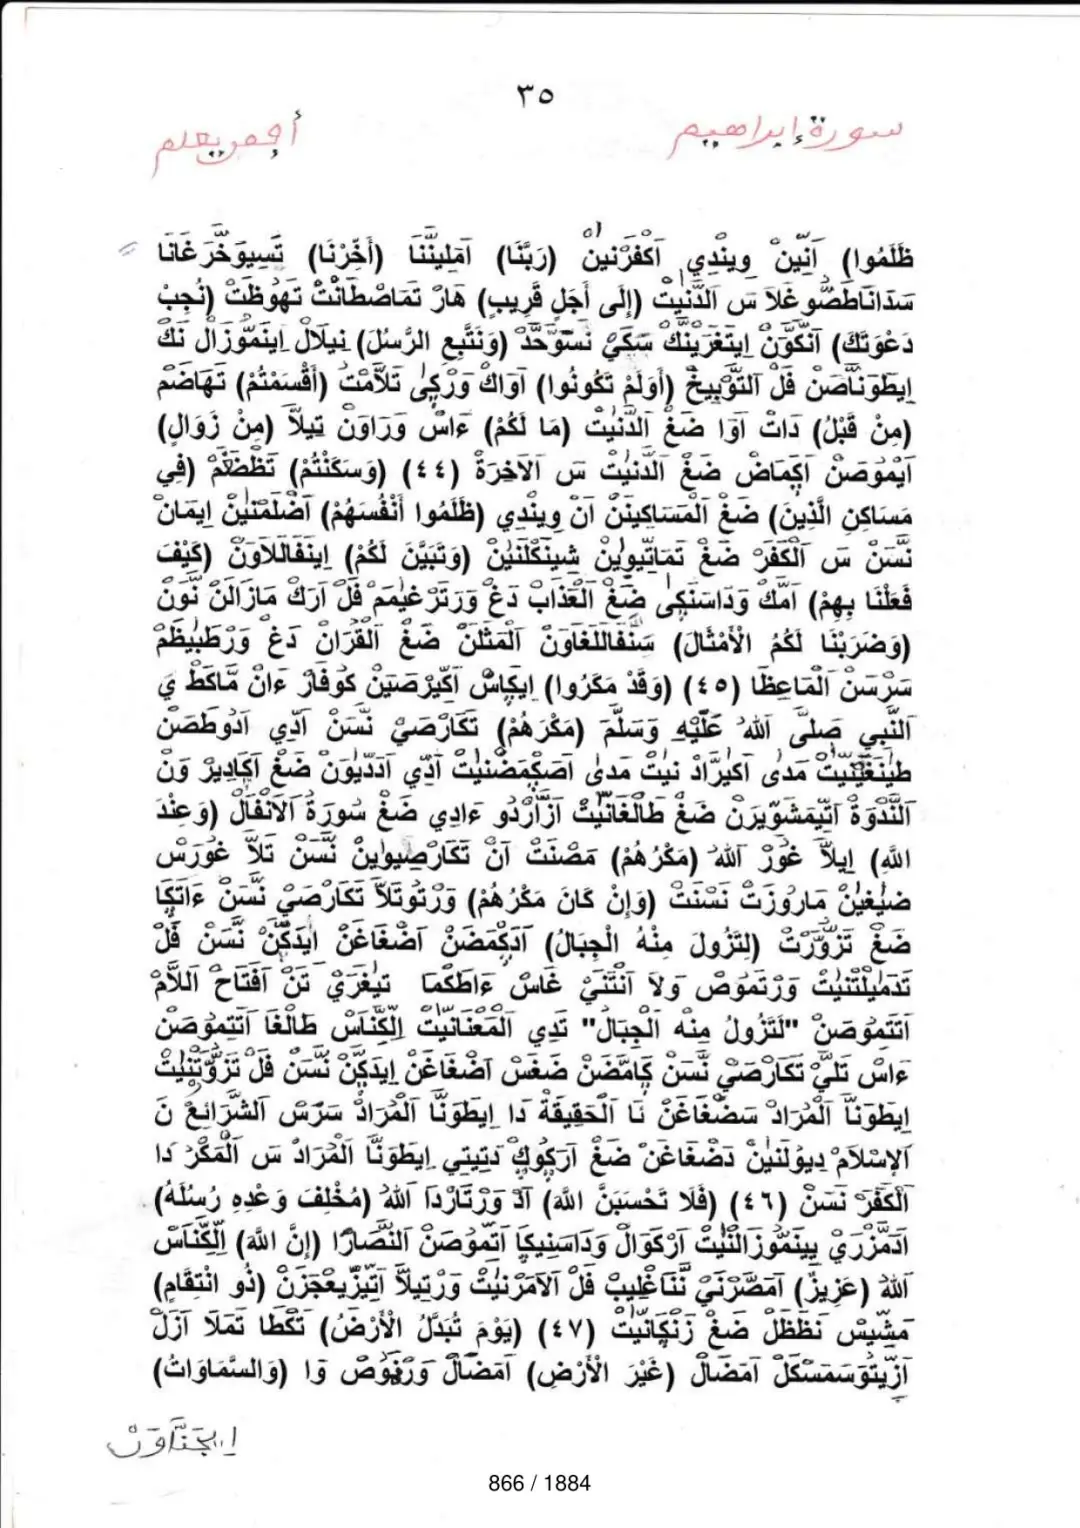 ٣٥
سورة إبراهيم
أفمن يعلم
ظَلَمُوا) آنِّينْ وِينْدِي اَكْفَرْنِينْ (رَبَّنَا) اَمَلِينَّنَا (أَخِّرْنَا) تَسِيوَخَّرَغَانَا
سَدَانَاطَصُّوغَلاَ سَ اَلدُّنْيِتْ (إِلَى أَجَلٍ قَرِيبٍ) هَارْ تَمَاضْطَانْتْ تَهُوظَتْ (نُجِبْ
دَعْوَتَكَ) اَنْكَوَّنْ اِيتَغْرِينَّكْ سَكَيْ نَسَوَّحَّدْ (وَنَتَّبِعِ الرُّسُلَ) نِيلاَلْ اِينَمُّوزَالْ نَكْ
اِيطَوَنَّاصَنْ فَلْ اَلتَّوْبِيخْ (أَوَلَمْ تَكُونُوا) آوَاكْ وَرْكِى تَلاَّمَتْ (أَقْسَمْتُمْ) تَهَاضَمْ
(مِنْ قَبْلُ) دَاتْ آوَا ضَغْ اَلدُّنْيِتْ (مَا لَكُمْ) ءَاسْ وَرَاوَنْ تِيلاَّ (مِنْ زَوَالٍ)
اَيْمُوصَنْ اَكِمَاضْ ضَغْ اَلدُّنْيِتْ سَ اَلاَخِرَةْ (٤٤) (وَسَكَنْتُمْ) تَظْظَغَمْ (فِي
مَسَاكِنِ الَّذِينَ) ضَغْ اَلْمَسَاكِينَنْ اَنْ وِينْدِي (ظَلَمُوا أَنْفُسَهُمْ) اَضْلَمْنَيْنْ اِيمَانْ
نَّسَنْ سَ اَلْكَفَرْ ضَغْ تَمَاتِّيوِينْ شِينَكَلْنَيْنْ (وَتَبَيَّنَ لَكُمْ) اِينَفَالَلاَوَنْ (كَيْفَ
فَعَلْنَا بِهِمْ) اَمَّكْ وَدَاسَنْكِى ضَغْ اَلْعَذَابْ دَغْ وَرَتَرْغِيمَمْ فَلْ اَرَكْ مَازَالَنْ نَّوَنْ
(وَضَرَبْنَا لَكُمُ الأَمْثَالَ) سَنْفَالَلَغَاوَنْ اَلْمَثَلَنْ ضَغْ اَلْقُرَانْ دَغْ وَرْطَبِيظَمْ
سَرْسَنْ اَلْمَاعِظَا (٤٥) (وَقَدْ مَكَرُوا) اِيكَاسْ اَكِيرَصَيْنْ كُوفَارْ ءَانْ مَّاكَطْ يَ
اَلنَّبِي صَلَّى اللهُ عَلَيْهِ وَسَلَّمَ (مَكْرَهُمْ) تَكَارْصَيْ نَسَنْ اَدِّي اَدُوطَصَنْ
اَلنَّدْوَةْ اَتِّيمَشَوِّيرَنْ ضَغْ طَالْغَانِّيتْ اَزَّارَدُو ءَادِي ضَغْ سُورَةُ اَلاَنْفَالْ (وَعِنْدَ
اللَّهِ) اِيلاَّ غُورْ اَللهُ (مَكْرُهُمْ) مَصْنَتْ اَنْ تَكَارْصِيوِينْ نَّسَنْ تَلاَّ غُورَسْ
ضِيْغِينْ مَارُوزَتْ نَسْنَتْ (وَإِنْ كَانَ مَكْرُهُمْ) وَرْتُوتَلاَّ تَكَارْصَيْ نَّسَنْ ءَاتَكَا
ضَغْ تَزُّوَّرْتْ (لِتَزُولَ مِنْهُ الْجِبَالُ) اَدَكْمَضَنْ اَضْغَاغَنْ اِيدَكَّنْ نَّسَنْ فَلْ
تَدَمَيْلَتْنَيْتْ وَرْتَمُوصْ وَلاَ اَنْتَنَيْ غَاسْ ءَاطَكْمَا تِيغْرَيْ تَنْ اَفْتَاحْ اَللاَّمْ
اَتَتَمُوصَنْ "لَتَزُولُ مِنْه اَلْجِبَالُ" تَدِي اَلْمَعْنَانِّيتْ اِلَكَّنَاسْ طَالْغَا اَتَتَمُوصَنْ
ءَاسْ تَلَيْ تَكَارْصَيْ نَّسَنْ كَامَضَنْ ضَغَسْ اَضْغَاغَنْ اِيدَكَّنْ نَّسَنْ فَلْ تَزُوَّتْنَيْتْ
اِيطَوَنَّا اَلْمُرَادْ سَضْغَاغَنْ نَا اَلْحَقِيقَةْ دَا اِيطَوَنَّا اَلْمُرَادْ سَرَسْ اَلشَّرَائِعْ نَ
اَلإِسْلاَمْ دِيوَلْنَيْنْ دَضْغَاغَنْ ضَغْ اَرْكُوكْ دَتِيتِي اِيطَوَنَّا اَلْمُرَادْ سَ اَلْمَكْرْ دَا
اَلْكَفَرْ نَسَنْ (٤٦) (فَلَا تَحْسَبَنَّ اللَّهَ) اَدْ وَرْتَارْدَا اَللهُ (مُخْلِفَ وَعْدِهِ رُسُلَهُ)
اَدَمَّزْرِي يِينَمُوزَالْنَيْتْ اَرْكَوَالْ وَدَاسَنِيكَا اَتَّمُوصَنْ اَلنُّصَّارَا (إِنَّ اللَّهَ) اِلَكَّنَاسْ
اَللهُ (عَزِيزٌ) اَمَصَّرْنَيْ نَّنَاغْلِيبْ فَلْ اَلاَمَرْنَيْتْ وَرْتِيلاَّ اَتِيزِّيعْجَزَنْ (ذُو انْتِقَامٍ)
مَشِّيسْ نَظْظَلْ ضَغْ زَنْكَانِّيتْ (٤٧) (يَوْمَ تُبَدَّلُ الْأَرْضُ) تَكْطَا تَمَلاَ اَزَلْ
اَزِّيتَوَسَمَسْكَلْ اَمَضَالْ (غَيْرَ الْأَرْضِ) اَمَضَالْ وَرْنَمُوصْ وَا (وَالسَّمَاوَاتُ)
866 / 1884